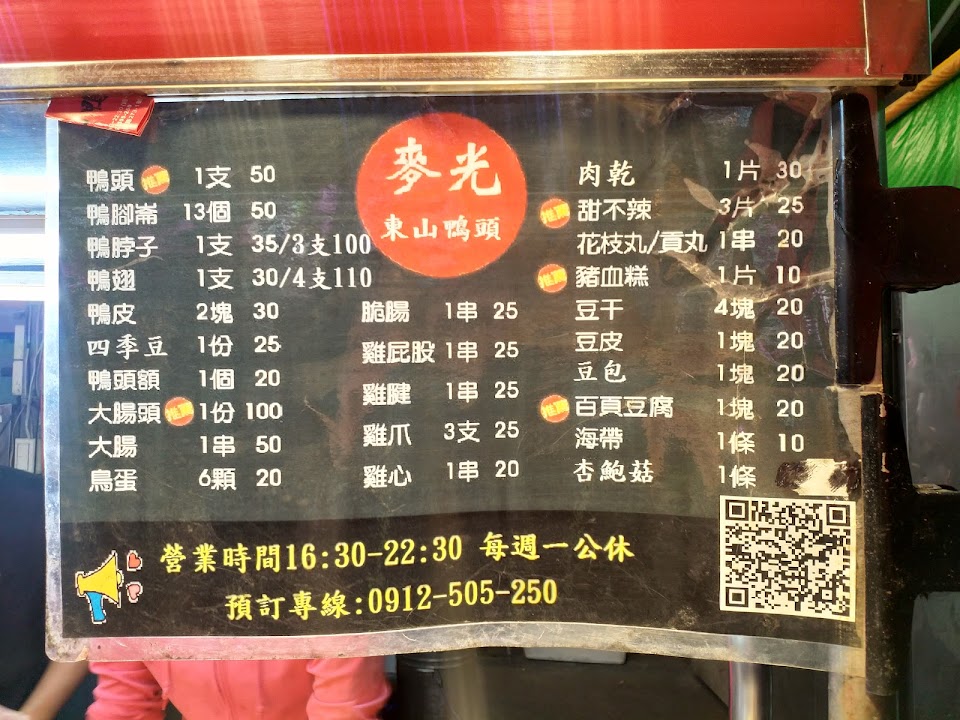 麥光
東山鴨頭
鴨頭 推薦 1支 50
鴨腳崙 13個 50
鴨脖子 1支 35/3支100
鴨翅 1支 30/4支110
鴨皮 2塊 30
四季豆 1份 25
鴨頭額 1個 20
大腸頭 推薦 1份 100
大腸 1串 50
鳥蛋 6顆 20
脆腸 1串 25
雞屁股 1串 25
雞腱 1串 25
雞爪 3支 25
雞心 1串 20
肉乾 1片 30
推薦 甜不辣 3片 25
花枝丸/貢丸 1串 20
推薦 豬血糕 1片 10
豆干 4塊 20
豆皮 1塊 20
豆包 1塊 20
推薦 百頁豆腐 1塊 20
海帶 1條 10
杏鮑菇 1條
營業時間16:30-22:30 每週一公休
預訂專線:0912-505-250